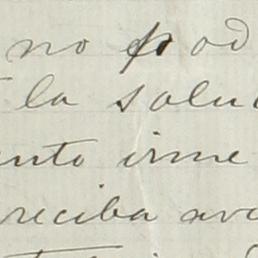 no pod
la salu
ento irme
reciba